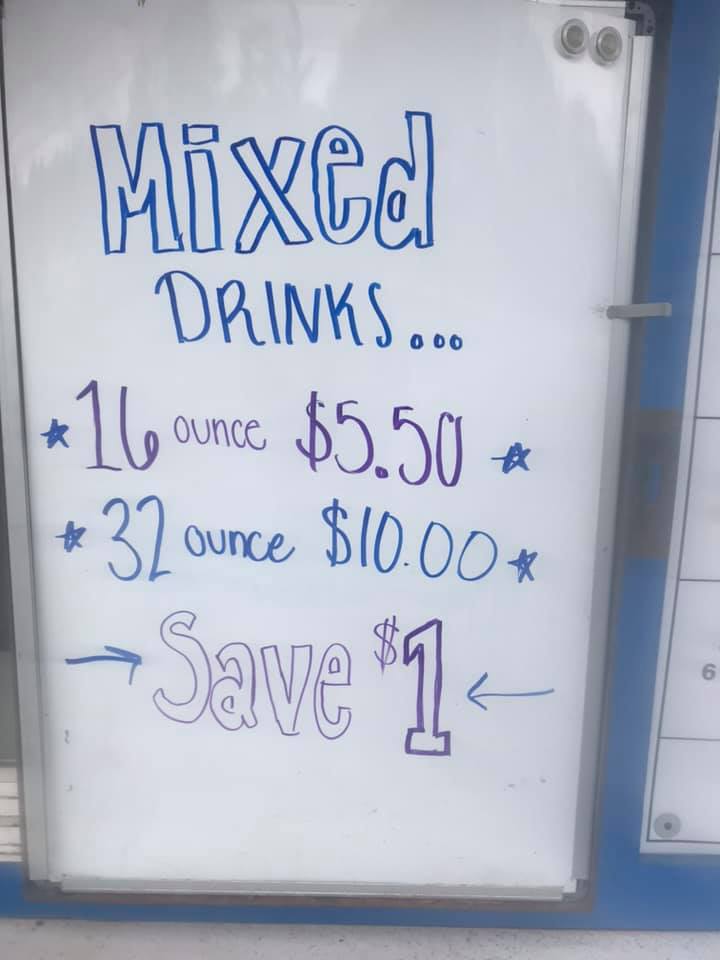 Mixed
DRINKS...
★ 16 ounce $5.50 ★
★ 32 ounce $10.00 ★
→ Save $1 ←
6